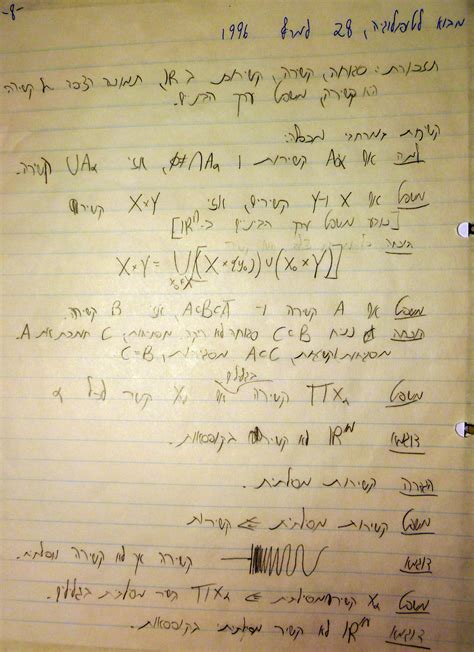 -8-
מבוא לטופולוגיה, 28 למרץ 1996
תזכורת: פתוחה, קשירה, קשירות ב ℝ, תמונה רציפה של קשירה
היא קשירה, משפט ערך הביניים.
קשירות במרחבי מכפלה:
למה אם Aα קשירות ו φ≠∩Aα, אזי ∪Aα קשירה.
משפט אם X ו-Y קשירים, אזי X×Y קשיר
[נובע משפט ערך הביניים ב-ℝⁿ]
הוכחה
X×Y = ∪[(X×{y₀})∪(x₀×Y)]
משפט אם A קשירה ו- A⊂B⊂Ā, אזי B קשירה.
הוכחה נניח C⊂B סגוחה לא ריקה, C את A.
A⊂C, C=B
משפט ΠXα קשירה בגלל Xα קשיר לכל α
דוגמא ℝ^ℕ לא קשיר בקופסאות.
הגדרה קשירות מסלתית.
משפט קשירות מסלתית ⇐ קשירות
דוגמא קשירה אך לא קשירה מסלתית.
משפט Xα קשיר מסילתית ⇐ ΠXα קשיר מסלתית
דוגמא ℝ^ℕ לא קשיר מסילתית בקופסאות.